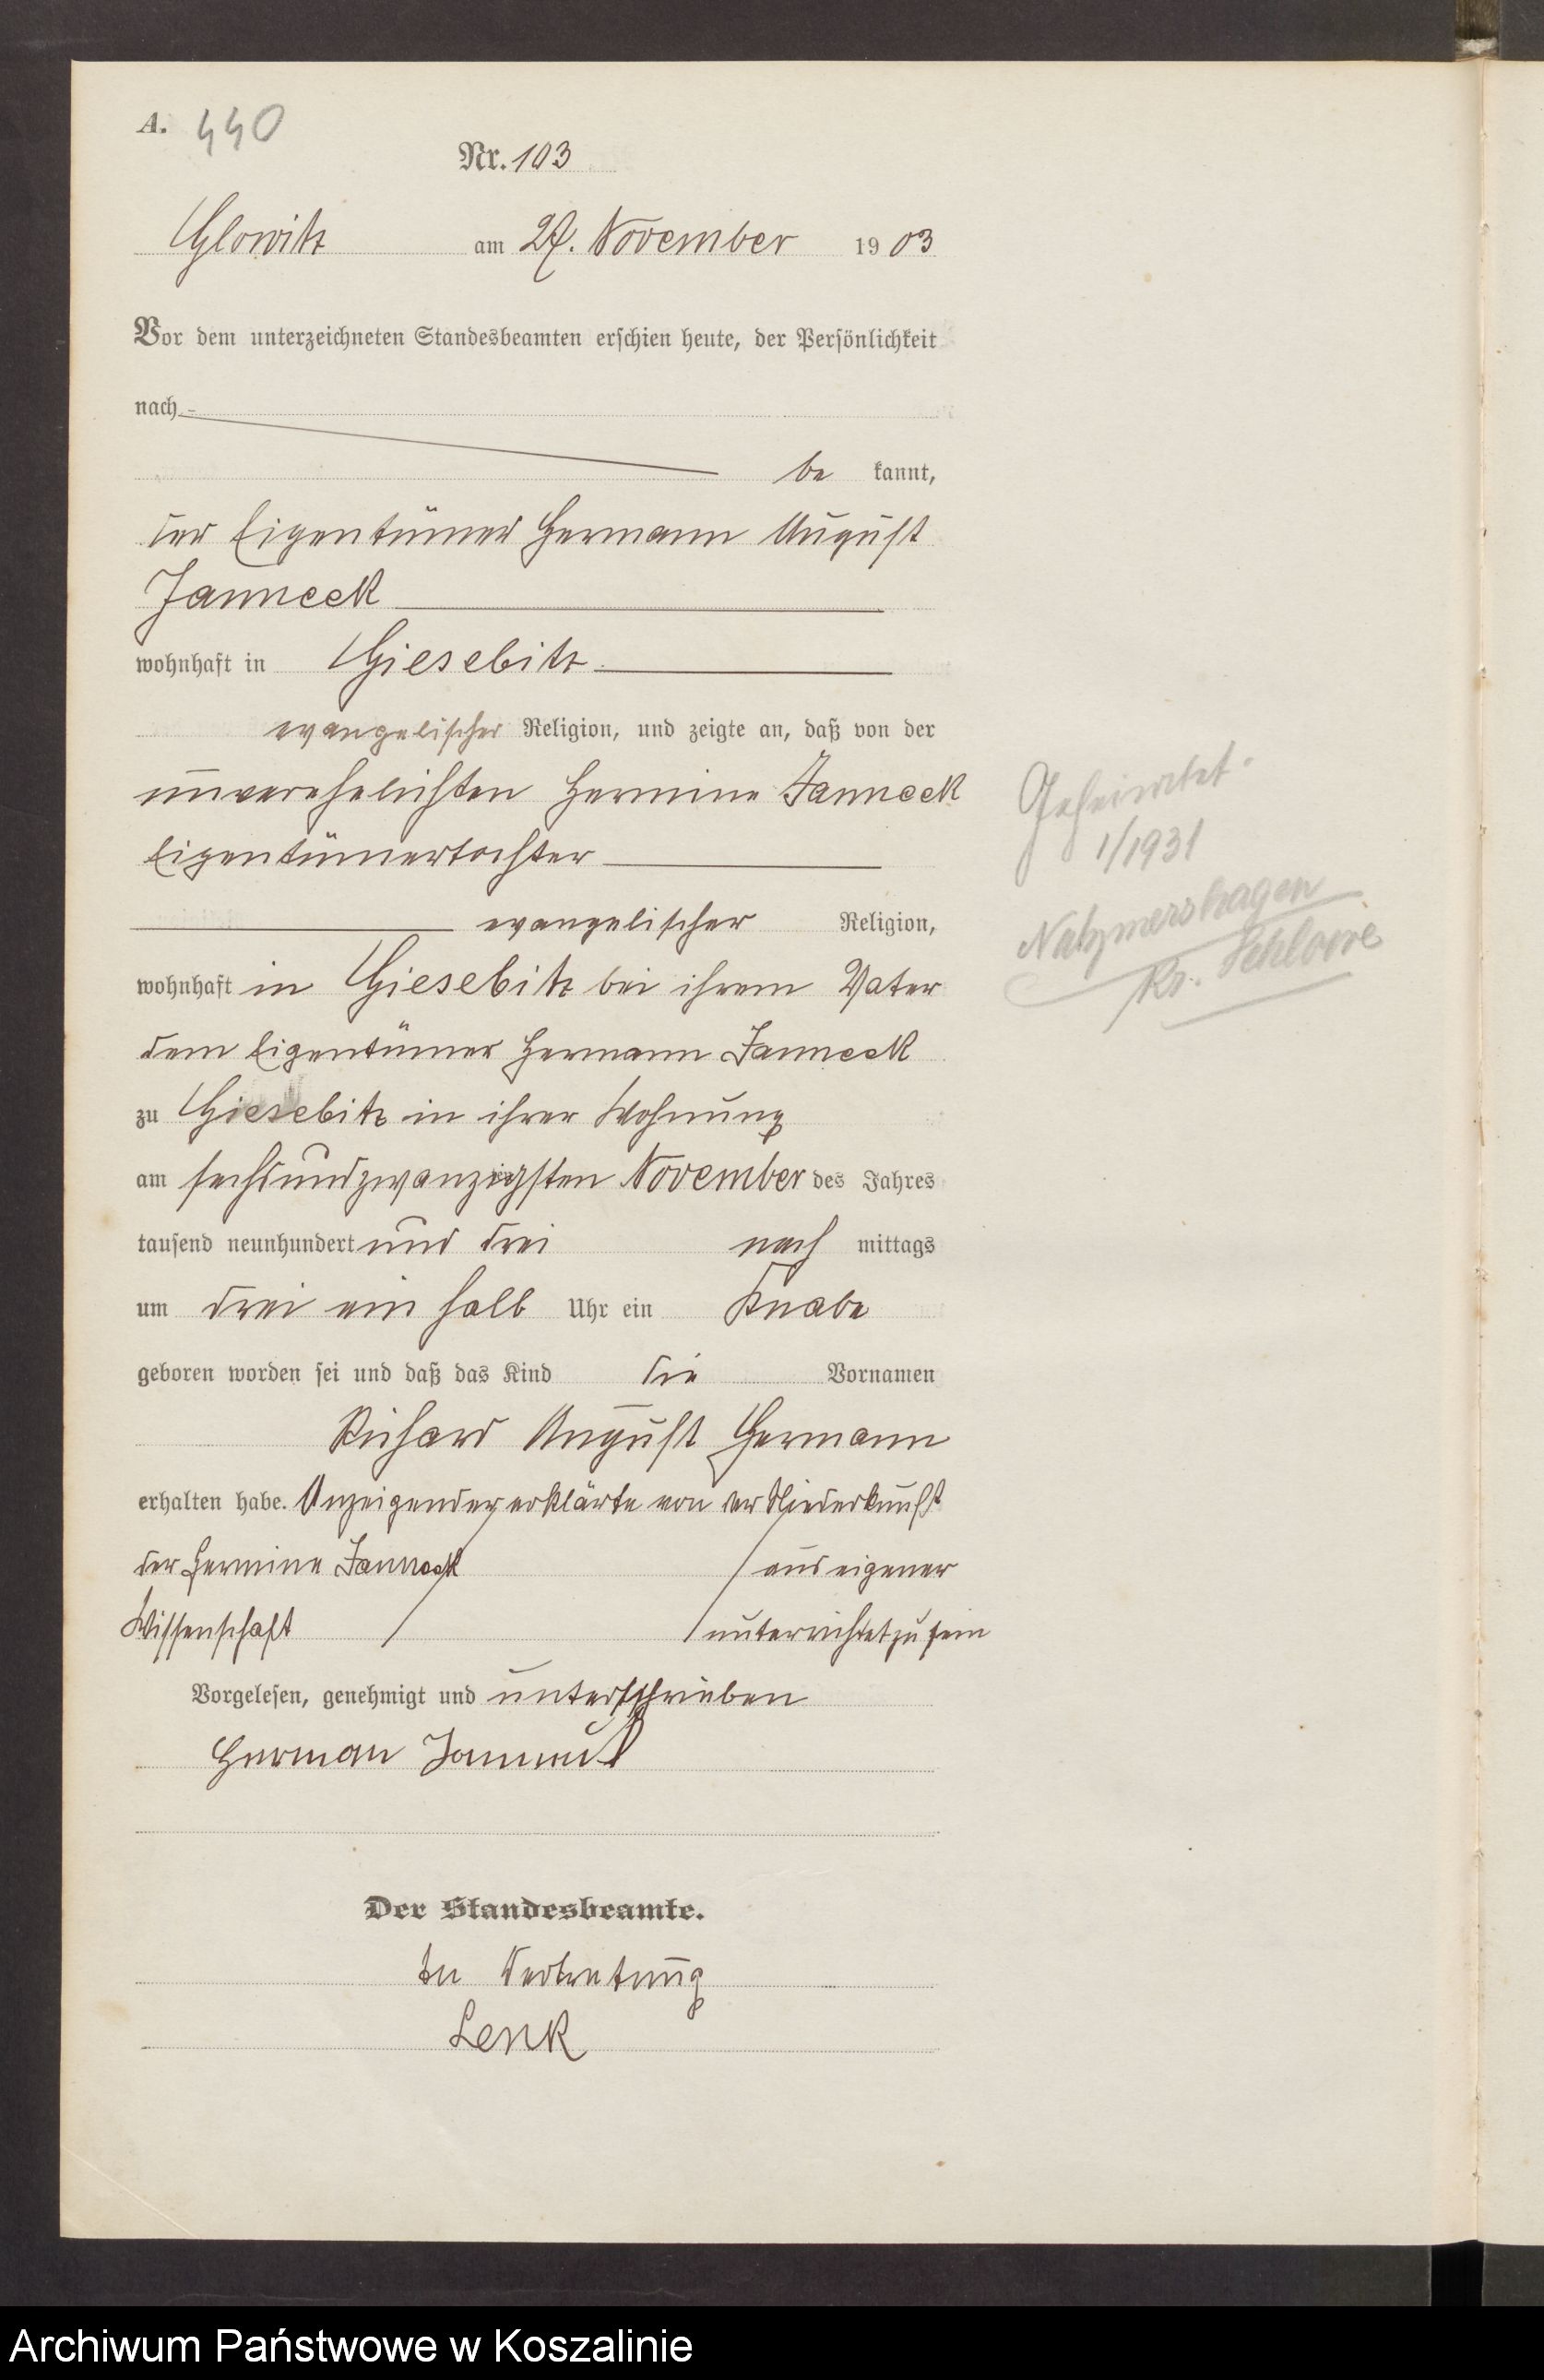 A. 440
Nr. 103
Glowitz am 27. November 1903
Vor dem unterzeichneten Standesbeamten erschien heute, der Persönlichkeit
nach
be kannt,
der Eigentümer Hermann August
Janneck
wohnhaft in Giesebitz
evangelischer Religion, und zeigte an, daß von der
unverehelichten Hermine Janneck
Eigentümertochter
evangelischer Religion,
wohnhaft in Giesebitz bei ihrem Vater
dem Eigentümer Hermann Janneck
zu Giesebitz in ihrer Wohnung
am sechsundzwanzigsten November des Jahres
tausend neunhundert und drei nach mittags
um drei ein halb Uhr ein Knabe
geboren worden sei und daß das Kind die Vornamen
Richard August Hermann
erhalten habe. Anzeigender erklärte von der Niederkunft
der Hermine Janneck aus eigener
Wissenschaft unterrichtet zu sein
Vorgelesen, genehmigt und unterschrieben
Herman Janneck
Der Standesbeamte.
In Vertretung
Lenk
Geheiratet.
1/1931
Natzmershagen
Kr. Schlawe
Archiwum Państwowe w Koszalinie